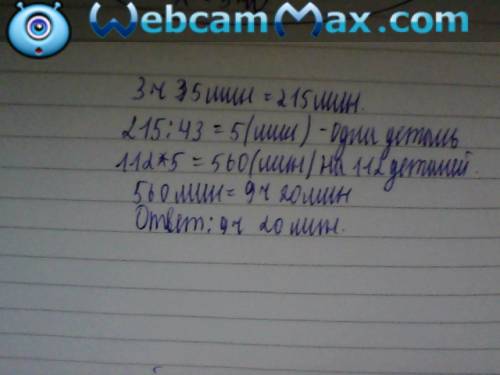 WebcamMax.com
3 ч 35 мин = 215 мин.
215 : 43 = 5 (мин) - одна деталь
112*5 = 560 (мин) на 112 деталей.
560 мин = 9 ч 20 мин
Ответ: 9ч 20 мин.